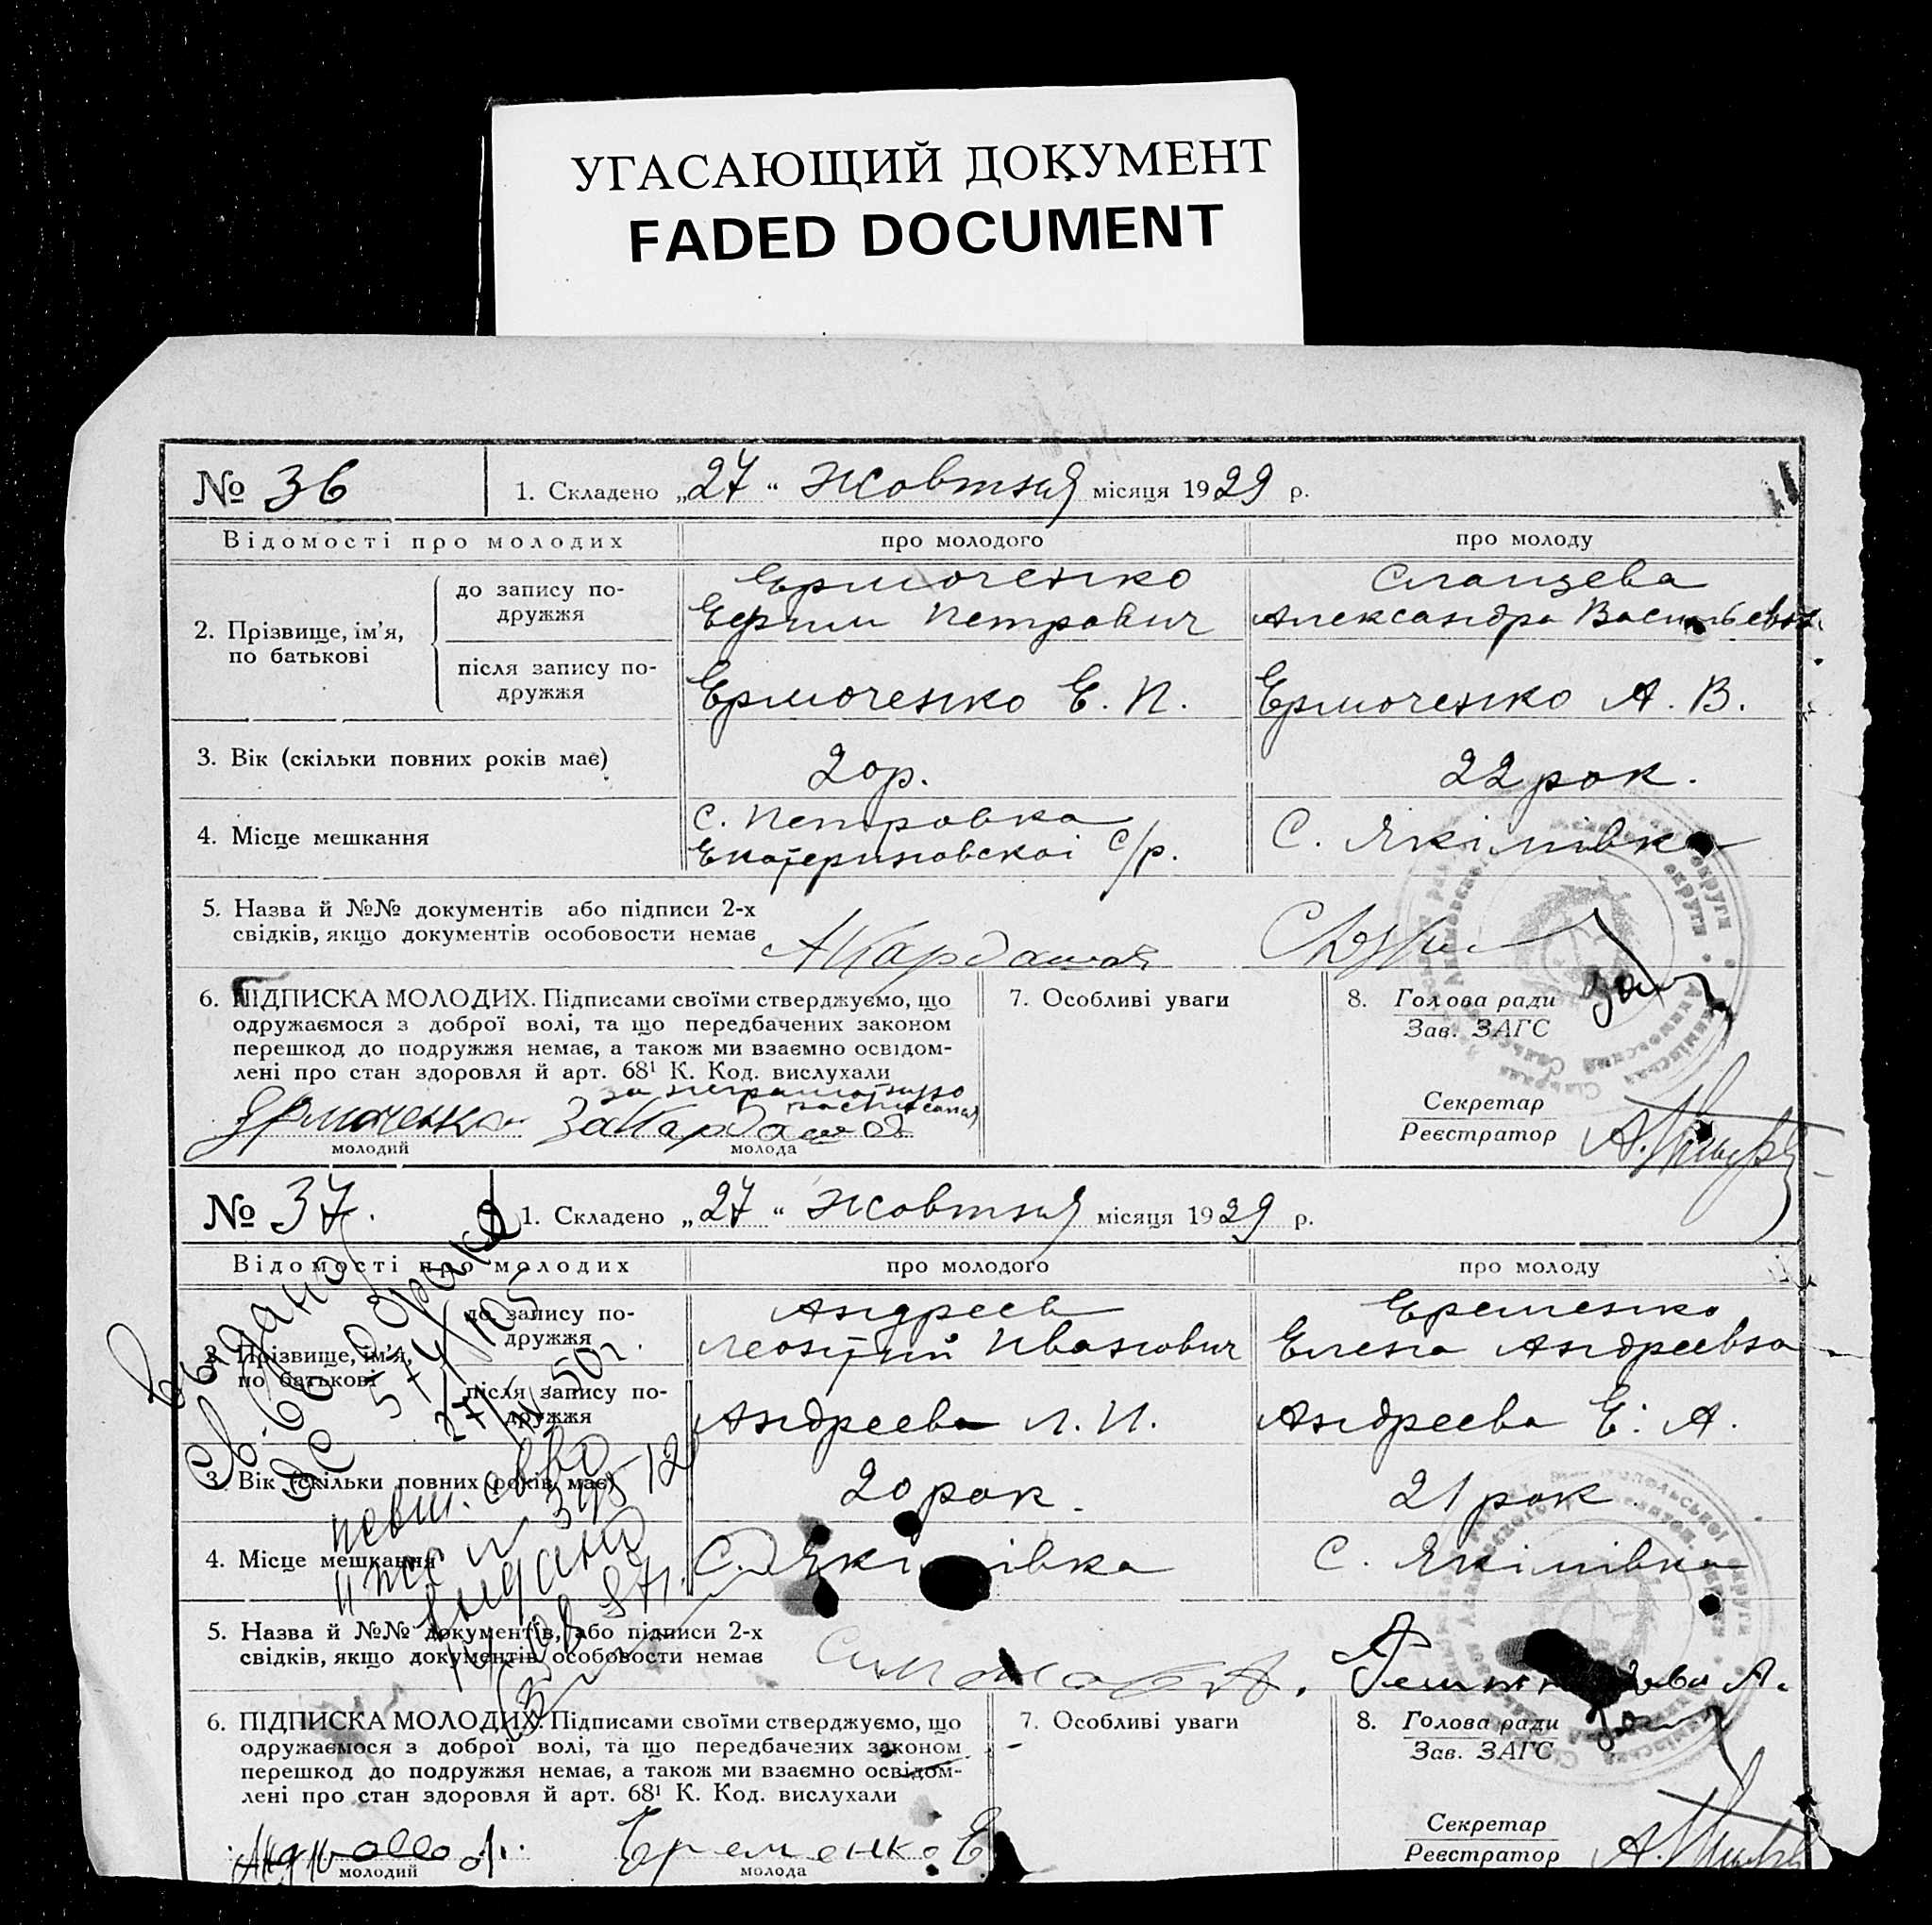 УГАСАЮЩИЙ ДОКУМЕНТ
FADED DOCUMENT
№ 36
1. Складено „27“ жовтня місяця 1929 р.
Відомості про молодих
про молодого
про молоду
2. Прізвище, ім'я, по батькові
до запису подружжя
Ермоченко
Ефим Петрович
Сланцева
Александра Васильевна
після запису подружжя
Ермоченко Е. П.
Ермоченко А. В.
3. Вік (скільки повних років має)
20 р.
22 рок.
4. Місце мешкання
с. Петровка
Екатериновскоі с/р.
С. Якімівка
5. Назва й №№ документів або підписи 2-х
свідків, якщо документів особовости немає
6. ПІДПИСКА МОЛОДИХ. Підписами своїми стверджуємо, що
одружаємося з доброї волі, та що передбачених законом
перешкод до подружжя немає, а також ми взаємно освідом-
лені про стан здоровля й арт. 68¹ К. Код. вислухали
за неграмотную
Ермоченко
молодий
молода
7. Особливі уваги
8. Голова ради
Зав. ЗАГС
Секретар
Реєстратор
№ 37.
1. Складено „27“ жовтня місяця 1929 р.
Відомості про молодих
про молодого
про молоду
2. Прізвище, ім'я, по батькові
до запису подружжя
Андреев
Леонтий Иванович
Еременко
Елена Андреевна
після запису подружжя
Андреева Л. И.
Андреева Е. А.
3. Вік (скільки повних років має)
20 рок.
21 рок.
4. Місце мешкання
С. Якімівка
С. Якімівка
5. Назва й №№ документів, або підписи 2-х
свідків, якщо документів особовости немає
6. ПІДПИСКА МОЛОДИХ. Підписами своїми стверджуємо, що
одружаємося з доброї волі, та що передбачених законом
перешкод до подружжя немає, а також ми взаємно освідом-
лені про стан здоровля й арт. 68¹ К. Код. вислухали
молодий
Еременко Е
молода
7. Особливі уваги
8. Голова ради
Зав. ЗАГС
Секретар
Реєстратор
Выдано
Св. о браке